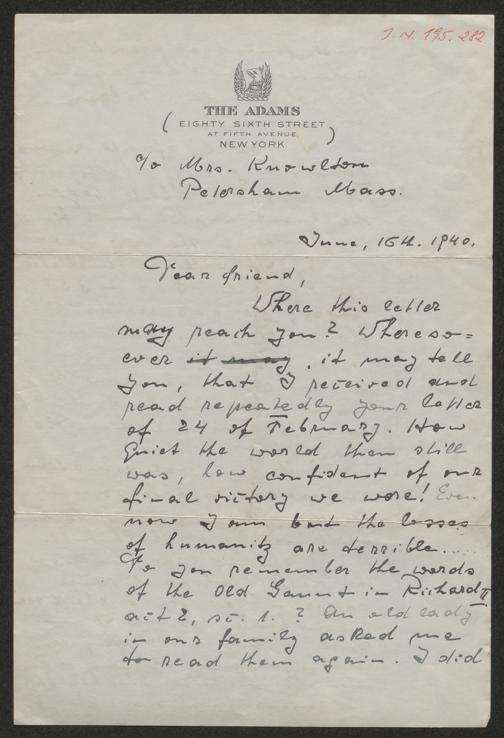 I.N. 195.282
THE ADAMS
( EIGHTY SIXTH STREET
AT FIFTH AVENUE,
NEW YORK )
c/o Mrs. Knowlton
Petersham Mass.
June, 16th. 1940.
Dear friend,
Where this letter
may reach you? Whereso=
ever it may, it may tell
you, that I received and
read repeatedly your letter
of 24 of February. How
quiet the world then still
was, how confident of our
final victory we were! Even
now I am but the losses
of humanity are terrible.....
Do you remember the words
of the old Gaunt in Richard II
act 2, sc. 1. ? An old lady
in our family asked me
to read them again. I did